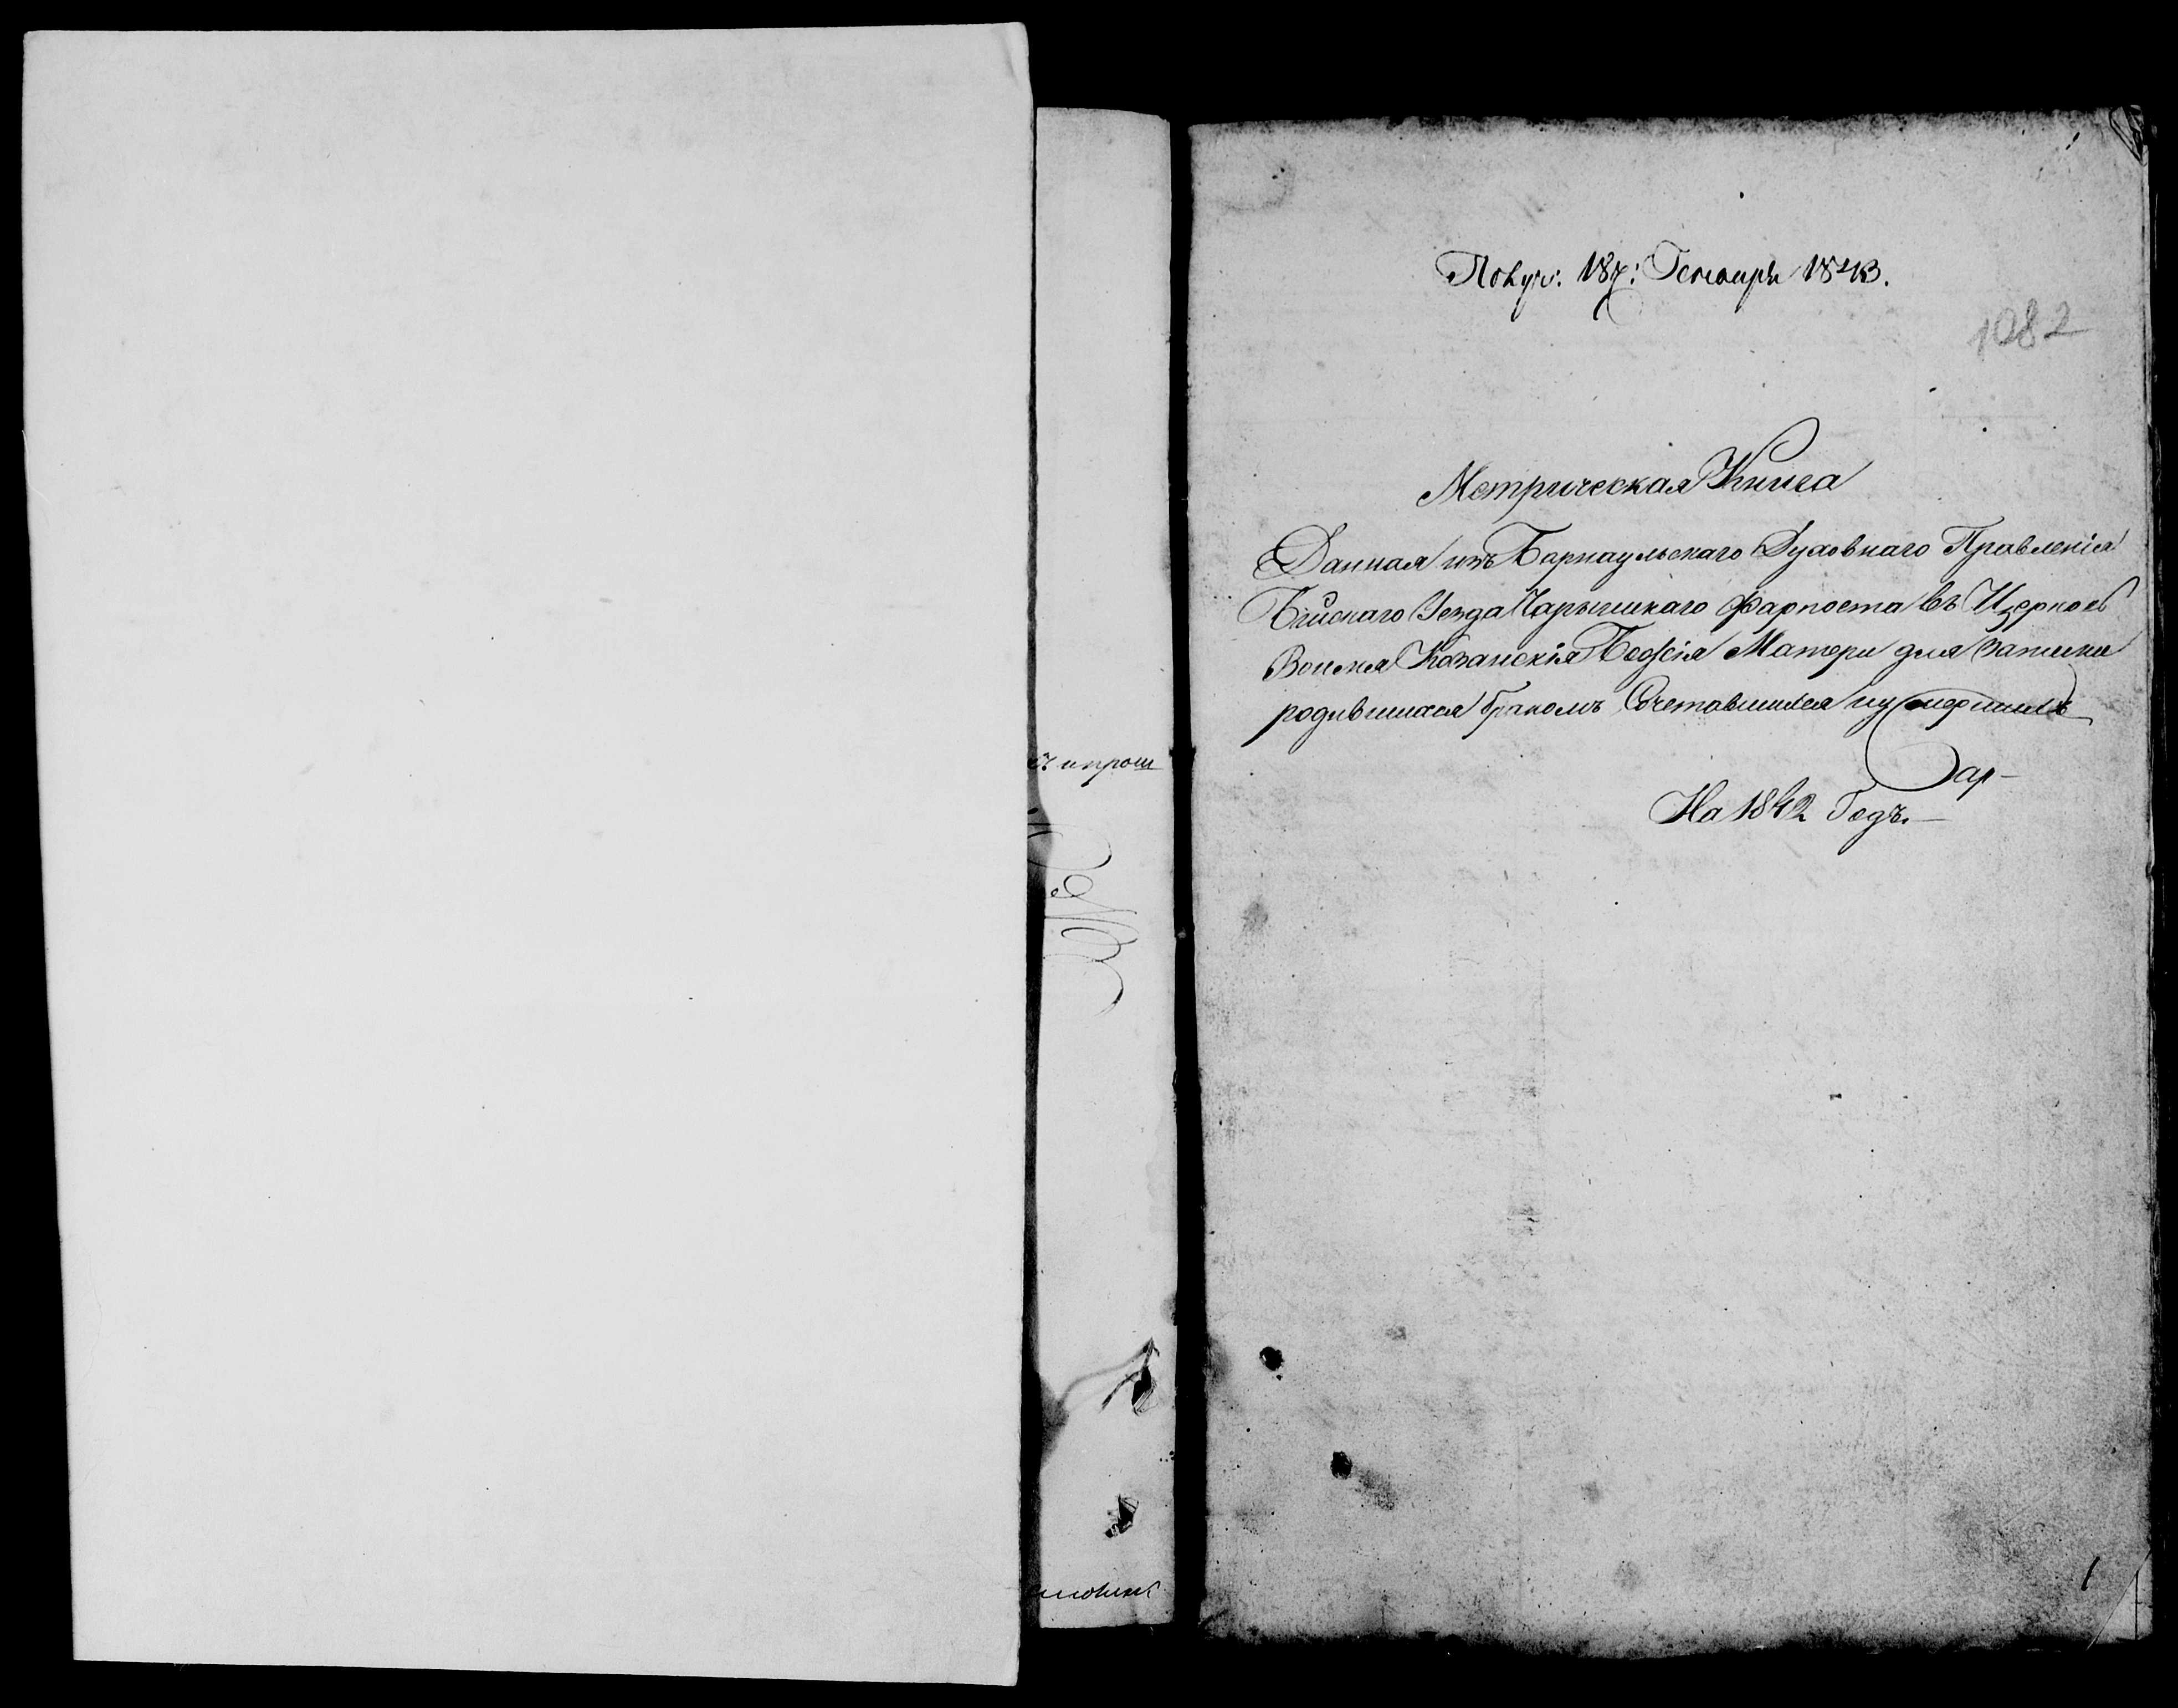 Получ: 18го: Генваря 1843.
1082
Метрическая Книга
Данная изъ Барнаульскаго Духовнаго Правленія
Бійскаго Уезда Чарышскаго Фарпоста въ Церковь
Воимя Казанскія Божія Матери для записки
родившихся бракомъ Сочетавшихся и умершихъ
На 1842 Годъ.
1